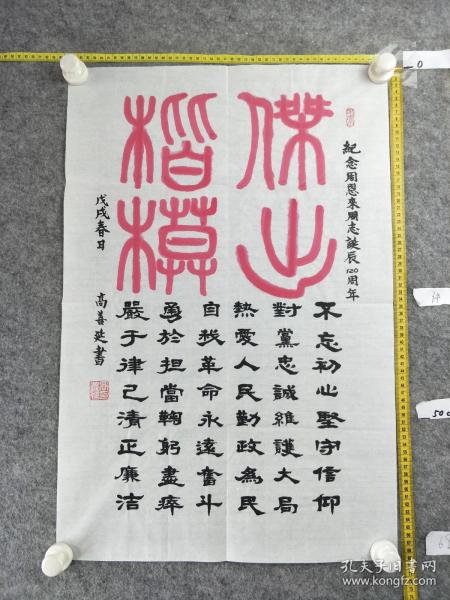 紀念周恩來同志誕辰120周年
傑出
楷模
不忘初心堅守信仰
對黨忠誠維護大局
熱愛人民勤政為民
自我革命永遠奮斗
勇於担當鞠躬盡瘁
嚴于律己清正廉洁
戊戌春日
高善延書
0
孔夫子旧书网
www.kongfz.com